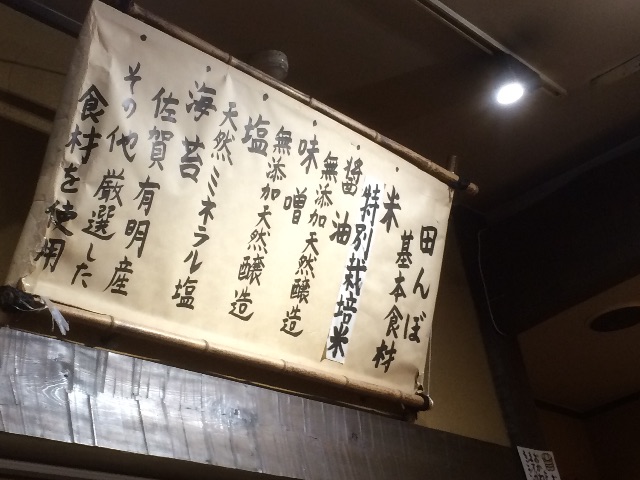 田んぼ
基本食材
・米
特別栽培米
・醤油
無添加天然醸造
・味噌
無添加天然醸造
・塩
天然ミネラル塩
・海苔
佐賀有明産
・その他厳選した
食材を使用